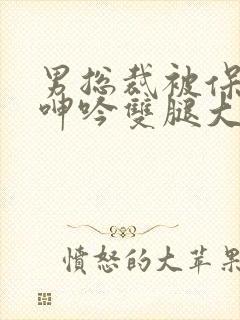 男总裁被保
呻吟雙腿大
憤怒的大苹果